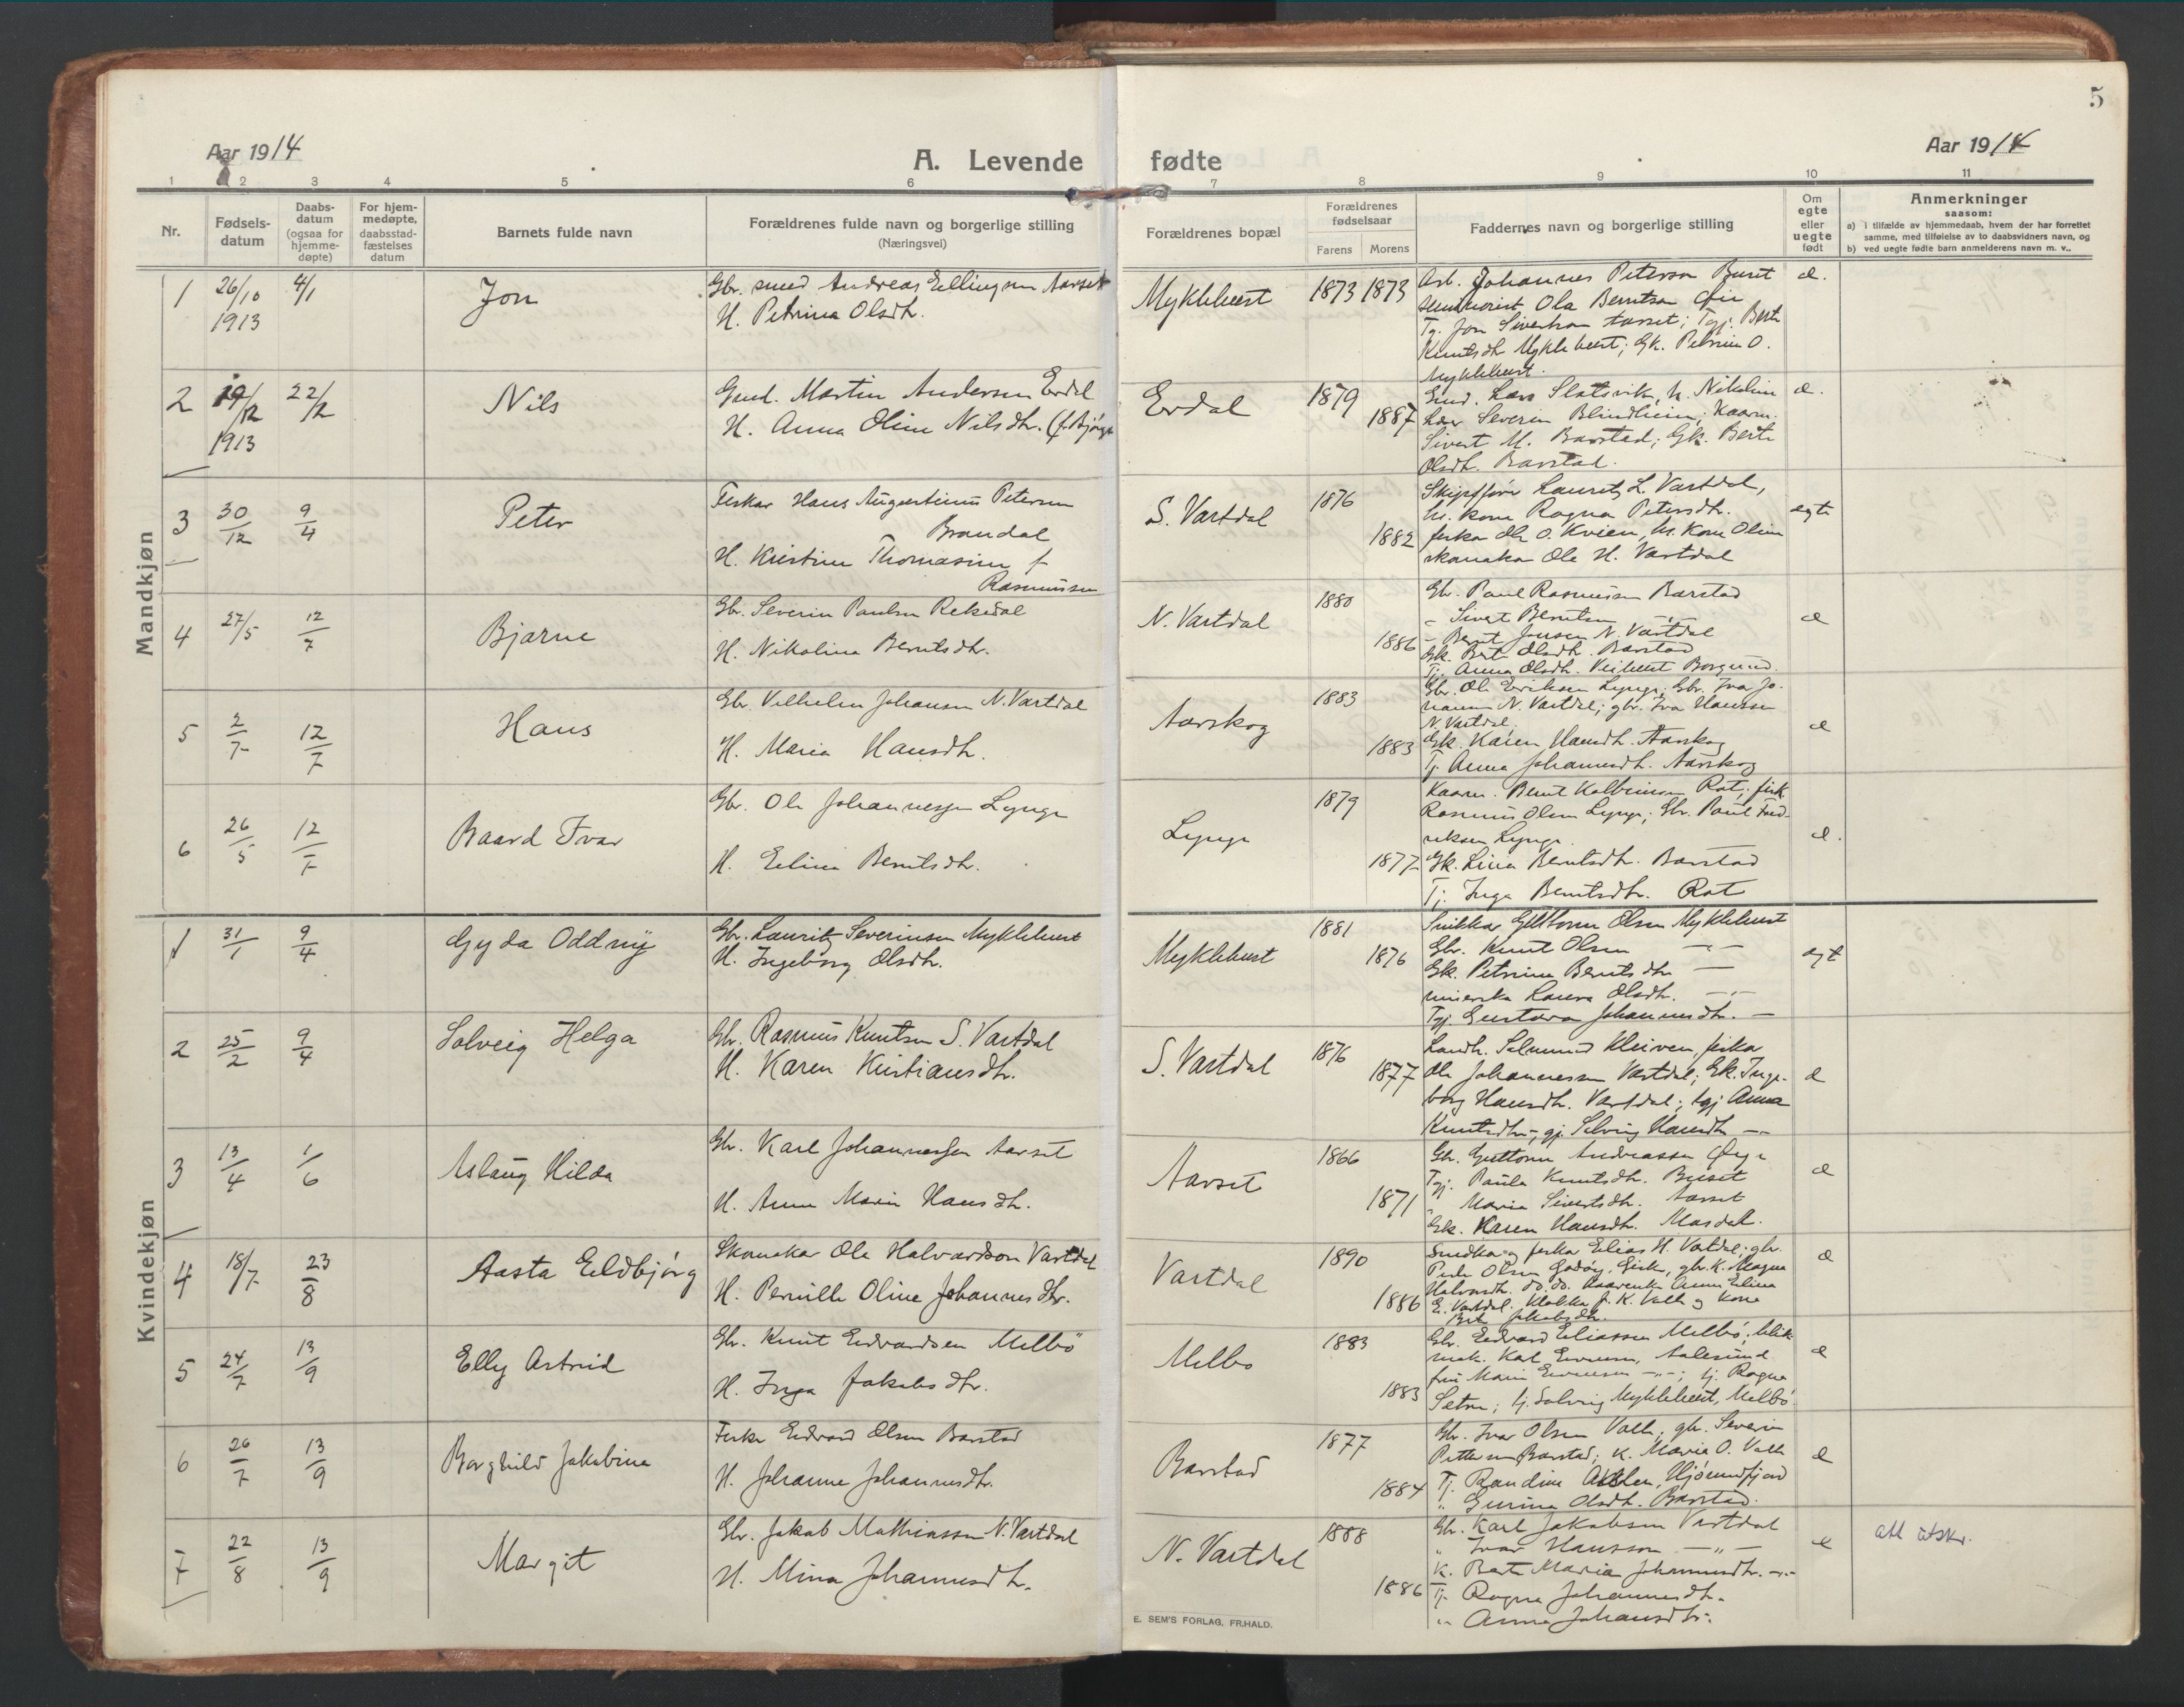 5
Aar 1914
A. Levende fødte
Aar 1914
1 2 3 4 5 6 7 8 9 10 11
Nr.
Fødsels-
datum
Daabs-
datum
(ogsaa for
hjemme-
døpte)
For hjem-
medøpte,
daabsstad-
fæstelses
datum
Barnets fulde navn
Forældrenes fulde navn og borgerlige stilling
(Næringsvei)
Forældrenes bopæl
Forældrenes
fødselsaar
Farens Morens
Faddernes navn og borgerlige stilling
Om
egte
eller
uegte
født
Anmerkninger
saasom:
a) i tilfælde av hjemmedaab, hvem der har forrettet
samme, med tilføielse av to daabsvidners navn, og
b) ved uegte fødte barn anmelderens navn m. v..
Mandkjøn
1 26/10 1913 4/1 Jon
Gbr. smed Andreas Ellingsen Aarset
H. Petrina Olsdh.
Myklebust 1873 1873
Arb. Johannes Peterson Buset
Ola Berntson
Tg. Jon Aarset; Tgj. Berte
Knutsdh. Myklebust; Gk. Petrine O.
Myklebust.
e.
2 19/12 1913 22/2 Nils
Martin Andersen Erdal
H. Anna Oline Nilsdh.
Erdal 1879 1887
Lars Slatsvik, h. Nikoline
Severin Blindheim; Kaarm.
Sivert M. Barstad; Gk. Berte
Olsdh. Barstad.
e.
3 30/12 9/4 Peter
Fiskar Hans Augustinus Petersen
Brandal
H. Kristine Thomasine f.
Rasmussen
S. Vartdal 1876 1882
Skipsfører Laurits L. Vartdal,
hs. kone Ragna Petersdh.
fiskar Ole O. Kvien, hs. kone Oline
skomakar Ole H. Vartdal
egte
4 27/5 12/7 Bjarne
Gbr. Severin Paulsen Rekedal
H. Nikoline Berntsdh.
N. Vartdal 1880 1886
Gbr. Paul Rasmussen Barstad
" Sivert Berntsen —"—
" Bernt Jonsen N. Vartdal
Gk. Berte Olsdh. Barstad
Tj. Anna Olsdh. Borgund.
e
5 2/7 12/7 Hans
Gbr. Vilhelm Johansen N. Vartdal
H. Maria Hansdh.
Aarskog 1883 1883
Gbr. Ole Eriksen Lynge; Gbr. Ivar Jo-
N. Vartdal; gbr. Iva Hanssen
N. Vartdal.
Gk. Karen Hansdh. Aarskog
Tj. Anna Johannesdh. Aarskog
e
6 26/5 12/7 Baard Ivar
Gbr. Ole Johannessen Lynge
H. Elina Berntsdh.
Lynge 1879 1877
Kaarm. Bernt Kolbeinson Rot; fisk.
Rasmus Olsen Lynge; Gbr. Paul Fred-
riksen Lynge.
Gk. Lina Berntsdh. Barstad
Tj. Inga Berntsdh. Rot
e.
Kvindekjøn
1 31/1 9/4 Gyda Oddny
Gbr. Laurits Severinsen Myklebust
H. Ingeborg Olsdh.
Myklebust 1881 1876
Snikkar Guttorm Olsen Myklebust
Gbr. Knut Olsen —"—
Gk. Petrine Berntsdh. —
Laura Olsdh. —"—
Tgj. Gustava Johannesdh. —
egt
2 25/2 9/4 Solveig Helga
Gbr. Rasmus Knutsen S. Vartdal
H. Karen Kristiansdh.
S. Vartdal 1876 1877
Landh. Salmund Kleiven, fiskar
Ole Johannessen Vartdal; Gk. Inge-
borg Hansdh. Vartdal; tgj. Anna
Knutsdh. —; gj. Solveig Hansdh. —"—
e
3 13/4 1/6 Aslaug Hilda
Gbr. Karl Johannessen Aarset
H. Anne Marie Hansdh.
Aarset 1866 1871
Gbr. Guttorm Andreassen Øye
Tgj. Paula Knutsdh. Buset
" Maria Sivertsdh. Aarset
Gk. Karen Hansdh. Masdal.
e
4 18/7 23/8 Aasta Eldbjørg
Skomakar Ole Halvardson Vartdal
H. Pernille Oline Johannesdtr.
Vartdal 1890 1886
fiskar Elias H. Vartdal; gbr.
Peder Olsen Godøy, Giske, gbr. k. Magna
Halvardh. do. do. Anne Elina
E. Vartdal. Klokkar J. K. Valle og kone
Berte Jakobsdh.
e
5 24/7 13/9 Elly Astrid
Gbr. Knut Edvardsen Melbø
H. Inga Jakobsdtr.
Melbø 1883 1883
Gbr. Edvard Eliassen Melbø; blik-
mak. Karl Aalesund
—"—; tj. Ragna
Sætre; tj. Solveig Myklebust, Melbø.
e
6 26/7 13/9 Borghild Jakobine
Fisker Edvard Olsen Barstad
H. Johanne Johannesdtr.
Barstad 1877 1884
Gbr. Ivar Olsen Valle; gbr. Severin
Petterson Barstad; K. Maria O. Valle
Tj. Randine Hjørundfjord
" Gurina Olsdh. Barstad.
e
7 22/8 13/9 Margit
Gbr. Jakob Mathiassen N. Vartdal
H. Mina Johannesdh.
N. Vartdal 1888 1886
Gbr. Karl Jakobsen Vartdal
" Ivar Hansson —"—
K. Berte Maria Johannesdh. —"—
Tj. Ragna Johannesdh.
" Anna Johansdtr.
e
att utskr.
E. SEM'S FORLAG, FR.HALD.